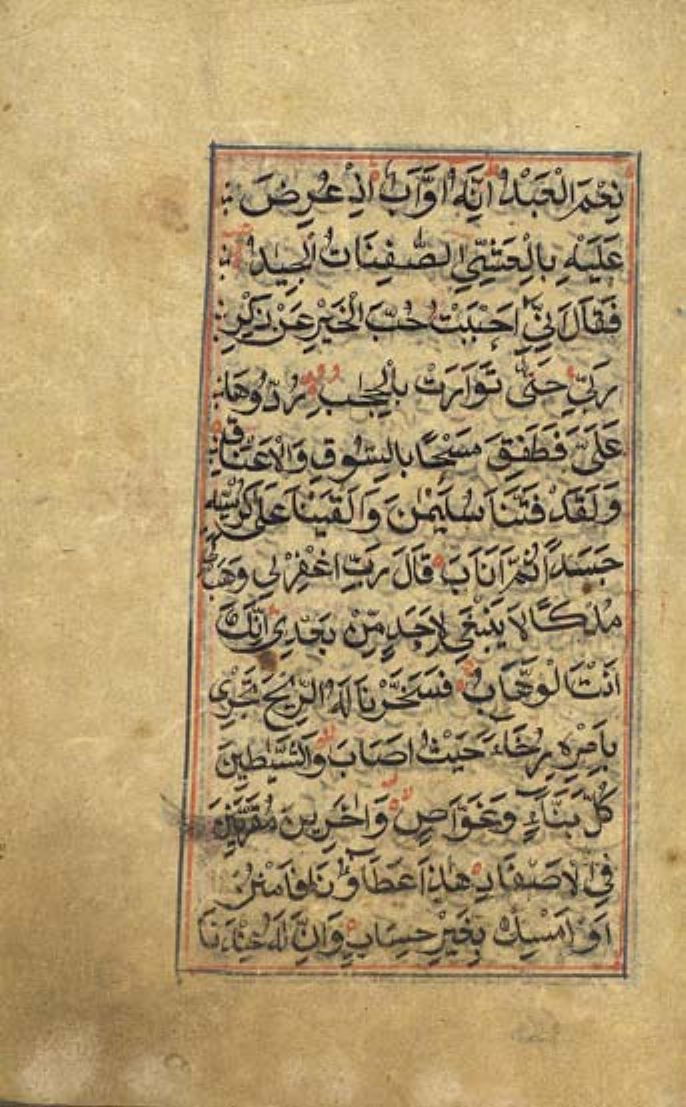 نِعْمَ الْعَبْدُ اِنَّهُ اَوَّابٌ اِذْ عُرِضَ
عَلَيْهِ بِالْعَشِيِّ الصّٰفِنَاتُ الْجِيَادُ
فَقَالَ اِنِّي اَحْبَبْتُ حُبَّ الْخَيْرِ عَنْ ذِكْرِ
رَبِّي حَتّٰى تَوَارَتْ بِالْحِجَابِ رُدُّوهَا
عَلَيَّ فَطَفِقَ مَسْحًا بِالسُّوقِ وَالْاَعْنَاقِ
وَلَقَدْ فَتَنَّا سُلَيْمٰنَ وَاَلْقَيْنَا عَلٰى كُرْسِيِّهِ
جَسَدًا ثُمَّ اَنَابَ قَالَ رَبِّ اغْفِرْ لِي وَهَبْ لِي
مُلْكًا لَا يَنْبَغِي لِاَحَدٍ مِّنْ بَعْدِي اِنَّكَ
اَنْتَ الْوَهَّابُ فَسَخَّرْنَا لَهُ الرِّيحَ تَجْرِي
بِاَمْرِهِ رُخَاءً حَيْثُ اَصَابَ وَالشَّيٰطِينَ
كُلَّ بَنَّاءٍ وَغَوَّاصٍ وَاٰخَرِينَ مُقَرَّنِينَ
فِي الْاَصْفَادِ هٰذَا عَطَاؤُنَا فَامْنُنْ
اَوْ اَمْسِكْ بِغَيْرِ حِسَابٍ وَاِنَّ لَهُ عِنْدَنَا